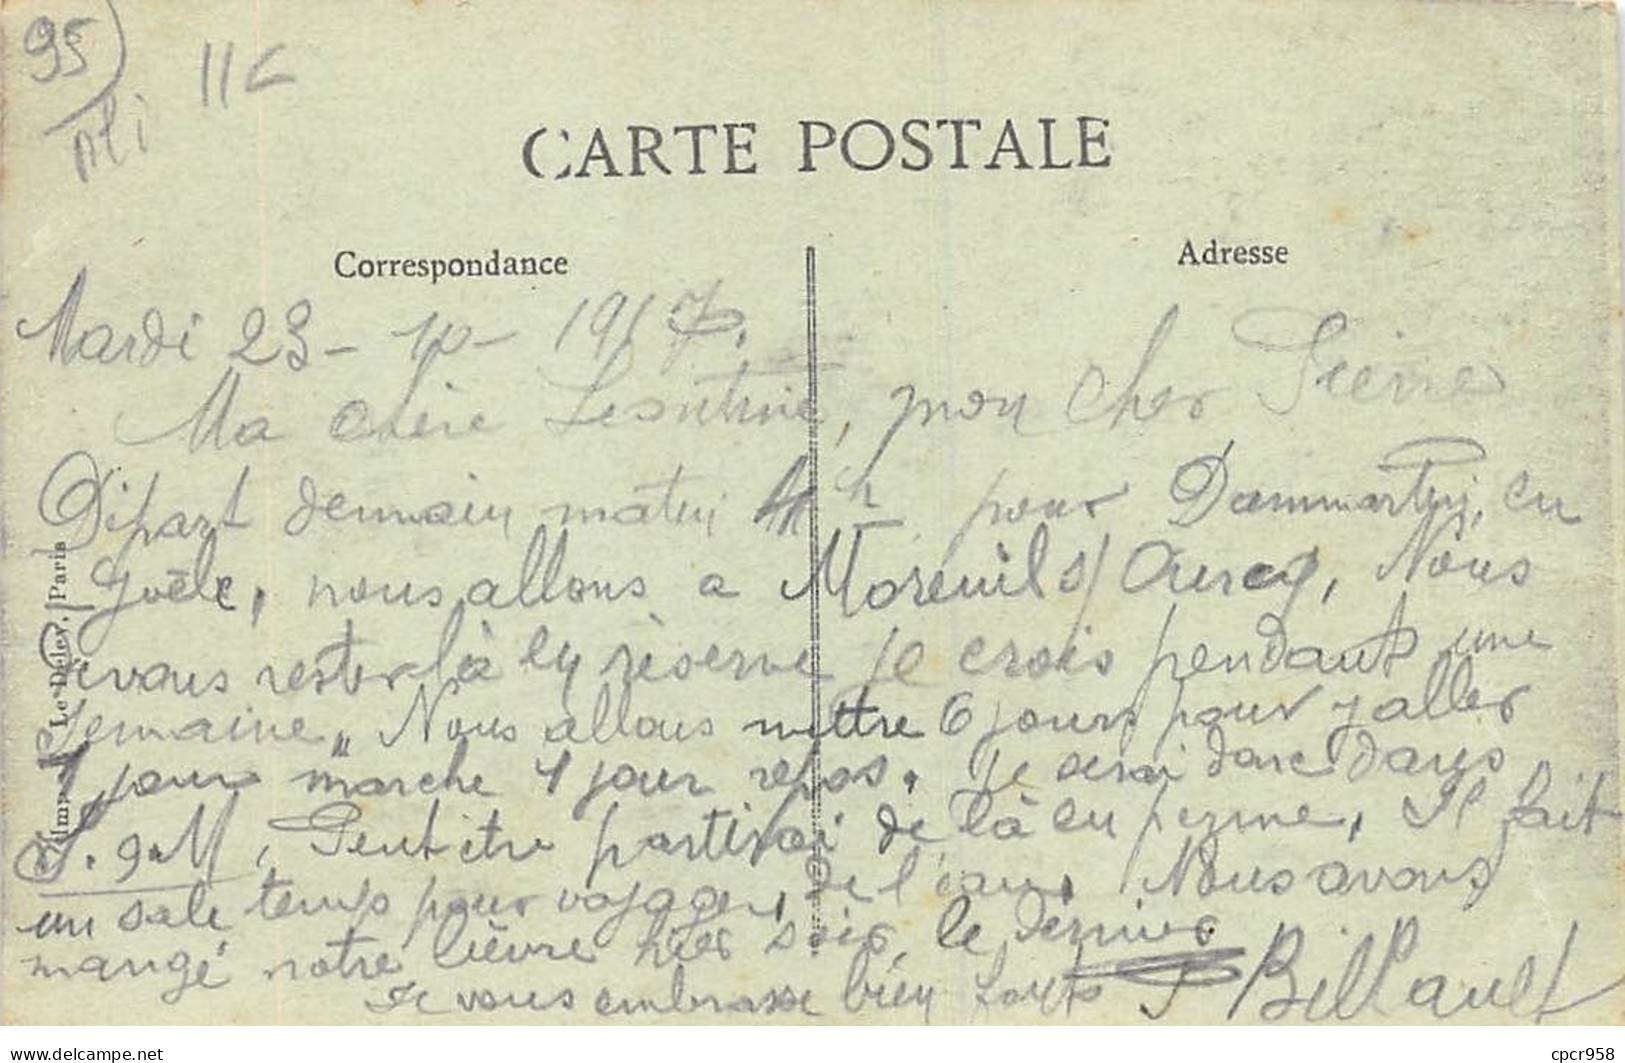 95
11€
CARTE POSTALE
Correspondance
Adresse
Mardi 23 - 10 - 1917.
Ma chère Léontine, mon cher Pierre
Départ demain matin 4h pour Dammartin, en
Goële, nous allons a Moreuil s/ Ourcq, Nous
devons rester là en réserve je crois pendant une
semaine,, Nous allons mettre 6 jours pour y aller
1 jour marche 1 jour repos. Je serai donc dans
S. &. M, Peut être partirai de là en perme, Il fait
un sale temps pour voyager, de l'eau, Nous avons
mangé notre lièvre hier soir, le dernier
Je vous embrasse bien forts P Billault
Imp. Le Deley, Paris
cpcr958